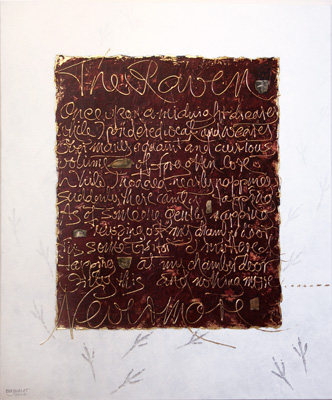 The Raven
Once upon a midnight dreary
while I pondered weak and weary
over many a quaint and curious
volume of forgotten lore
While I nodded nearly napping
suddenly there came a tapping
As of someone gently rapping
rapping at my chamber door
Tis some visitor I muttered
tapping at my chamber door
Only this and nothing more
Nevermore